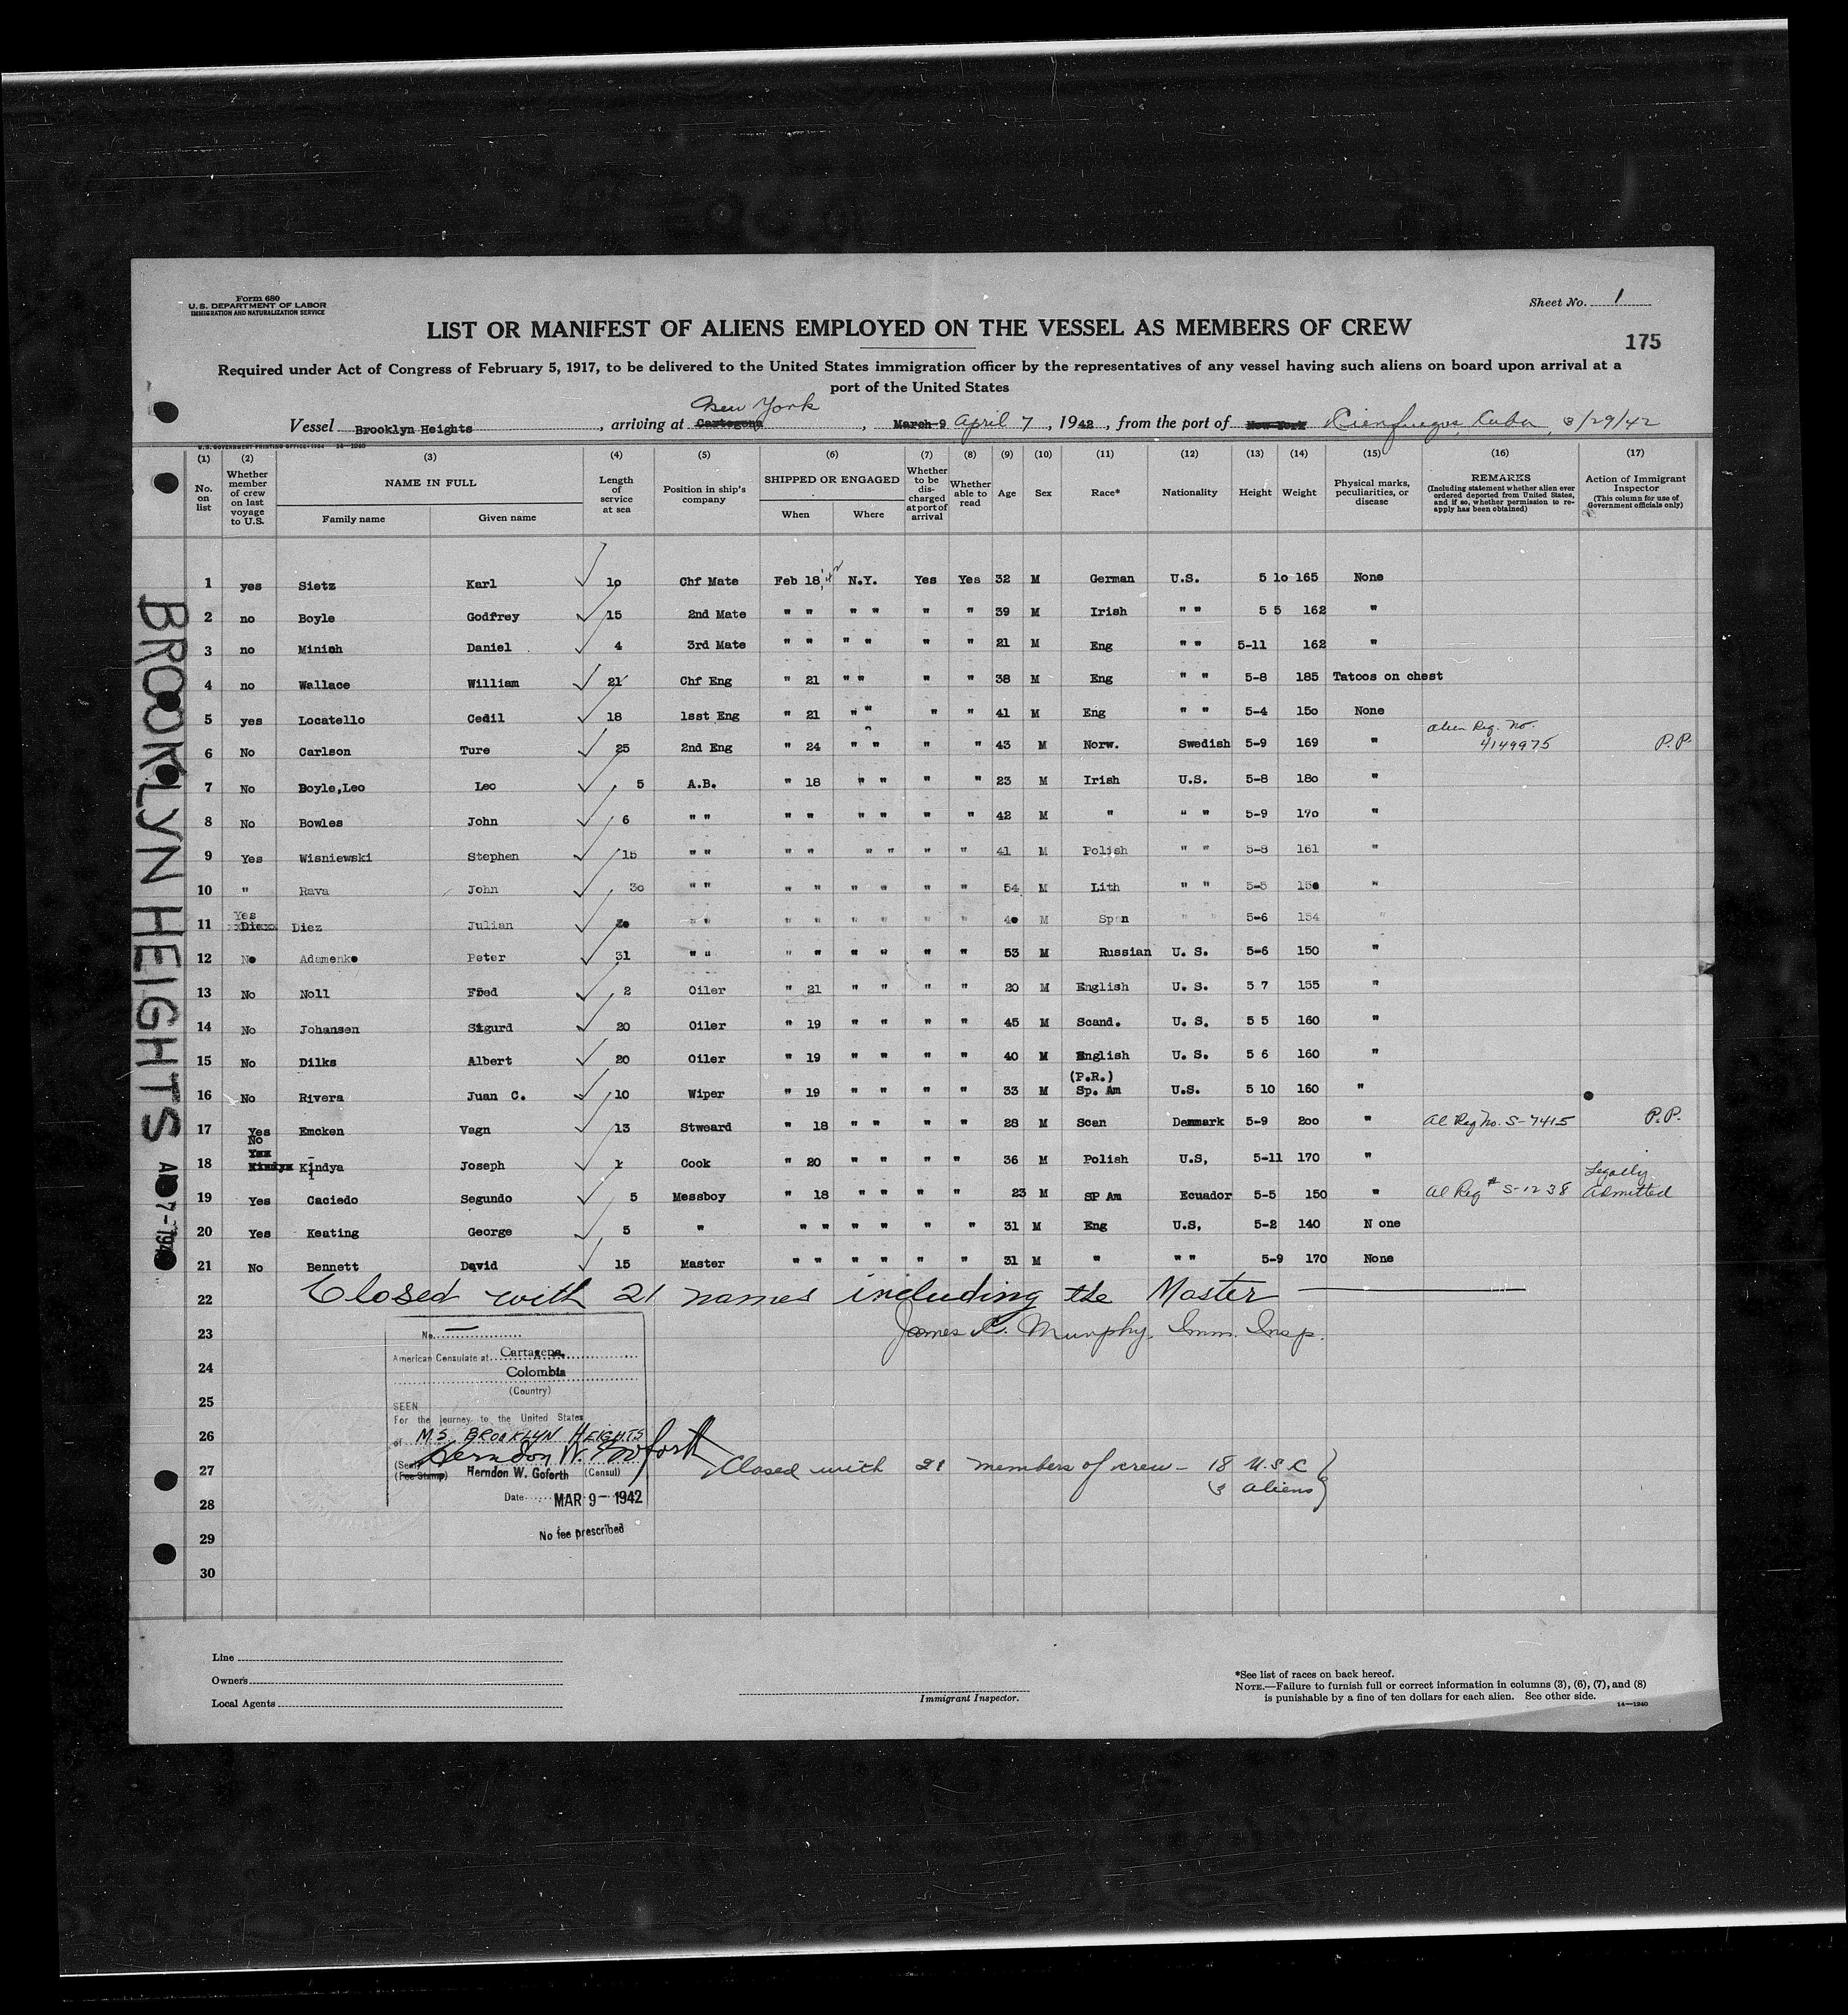 Form 680
U.S. DEPARTMENT OF LABOR
IMMIGRATION AND NATURALIZATION SERVICE
Sheet No. 1
LIST OR MANIFEST OF ALIENS EMPLOYED ON THE VESSEL AS MEMBERS OF CREW
175
Required under Act of Congress of February 5, 1917, to be delivered to the United States immigration officer by the representatives of any vessel having such aliens on board upon arrival at a
port of the United States
New York
Vessel Brooklyn Heights, arriving at Cartegena, March 9 April 7, 1942, from the port of New York Cienfuegos, Cuba, 3/29/42
U.S. GOVERNMENT PRINTING OFFICE: 1934 14-1240
(1) (2) (3) (4) (5) (6) (7) (8) (9) (10) (11) (12) (13) (14) (15) (16) (17)
No. on list
Whether member of crew on last voyage to U.S.
NAME IN FULL
Family name
Given name
Length of service at sea
Position in ship's company
SHIPPED OR ENGAGED
When
Where
Whether to be discharged at port of arrival
Whether able to read
Age
Sex
Race*
Nationality
Height
Weight
Physical marks, peculiarities, or disease
REMARKS
(Including statement whether alien ever ordered deported from United States, and if so, whether permission to reapply has been obtained)
Action of Immigrant Inspector
(This column for use of Government officials only)
1 yes Sietz Karl 10 Chf Mate Feb 18,'42 N.Y. Yes Yes 32 M German U.S. 5 10 165 None
2 no Boyle Godfrey 15 2nd Mate " " " " " " 39 M Irish " " 5 5 162 "
3 no Minich Daniel 4 3rd Mate " " " " " " 21 M Eng " " 5-11 162 "
4 no Wallace William 21 Chf Eng " 21 " " " " 38 M Eng " " 5-8 185 Tatoos on chest
5 yes Locatello Cedil 18 1sst Eng " 21 " " " " 41 M Eng " " 5-4 150 None
6 No Carlson Ture 25 2nd Eng " 24 " " " " 43 M Norw. Swedish 5-9 169 " Alien Reg. No. 4149975 P.P.
7 No Boyle,Leo Leo 5 A.B. " 18 " " " " 23 M Irish U.S. 5-8 180 "
8 No Bowles John 6 " " " " " " " " 42 M " " " 5-9 170 "
9 Yes Wisniewski Stephen 15 " " " " " " " " 41 M Polish " " 5-8 161 "
10 " Rava John 30 " " " " " " " " 54 M Lith " " 5-5 150 "
11 Yes Diez Julian " " " " " " " " 40 M Span " " 5-6 154 "
12 No Adamenko Peter 31 " " " " " " " " 53 M Russian U. S. 5-6 150 "
13 No Noll Fred 2 Oiler " 21 " " " " 20 M English U. S. 5 7 155 "
14 No Johansen Sigurd 20 Oiler " 19 " " " " 45 M Scand. U. S. 5 5 160 "
15 No Dilks Albert 20 Oiler " 19 " " " " 40 M English U. S. 5 6 160 "
16 No Rivera Juan C. 10 Wiper " 19 " " " " 33 M (P.R.) Sp. Am U.S. 5 10 160 "
17 Yes Emcken Vagn 13 Stweard " 18 " " " " 28 M Scan Denmark 5-9 200 " Al Reg No. S-7415 P.P.
18 No Yes Kindya Kindya Joseph 1 Cook " 20 " " " " 36 M Polish U.S, 5-11 170 "
19 Yes Caciedo Segundo 5 Messboy " 18 " " " " 23 M SP Am Ecuador 5-5 150 " Al Reg # S-1238 Legally Admitted
20 Yes Keating George 5 " " " " " " " 31 M Eng U.S, 5-2 140 N one
21 No Bennett David 15 Master " " " " " " 31 M " " " 5-9 170 None
22 Closed with 21 names including the Master
23 James C. Murphy. Imm. Insp.
24
25
26
27
28
29
30
No.
American Consulate at Cartagena,
Colombia
(Country)
SEEN
For the journey to the United States
of M/S BROOKLYN HEIGHTS
Herndon W. Goforth
(Seal)
(Fee Stamp) Herndon W. Goforth (Consul)
Date MAR 9 - 1942
No fee prescribed
Closed with 21 members of crew - 18 U.S.C
3 aliens
BROOKLYN HEIGHTS
Line
Owners
Local Agents
Immigrant Inspector.
*See list of races on back hereof.
NOTE.—Failure to furnish full or correct information in columns (3), (6), (7), and (8)
is punishable by a fine of ten dollars for each alien. See other side.
14-1240